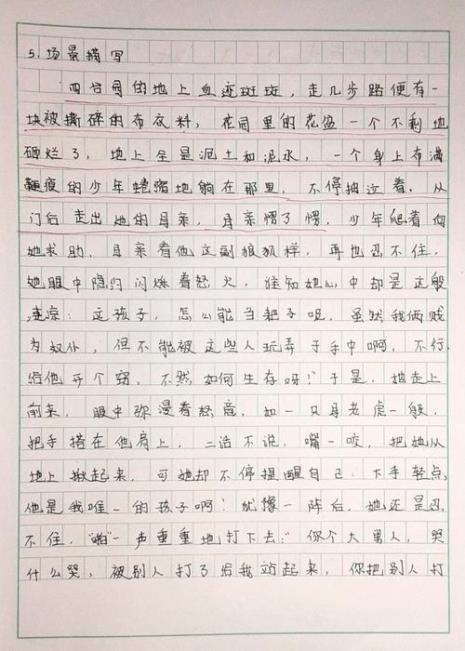 5. 场景描写
四合园的地上血迹斑斑，走几步路便有一
块被撕碎的布衣料，花园里的花盆一个不剩地
砸烂了，地上全是泥土和泥水，一个身上布满
鞭痕的少年蜷缩地躺在那里，不停抽泣着，从
门后走出她的母亲，母亲愣了愣，少年爬着向
她求助，母亲看他这副狼狈样，再也忍不住，
她眼中隐约闪烁着怒火，谁知她心中却是这般
凄凉：这孩子，怎么能当耙子呢，虽然我俩贱
为奴仆，但不能被这些人玩弄于手中啊，不行，
给他开个窍，不然如何生存呀！于是，她走上
前来，眼中弥漫着怒意，如一只母老虎一般，
把手搭在他肩上，二话不说，嘴一咬，把她从
地上揪起来，可她却不停提醒自己：下手轻点，
他是我唯一的孩子啊！犹豫一阵后，她还是忍
不住，“啪”一声重重地打下去：“你个大男人，哭
什么哭，被别人打了给我站起来，你把别人打